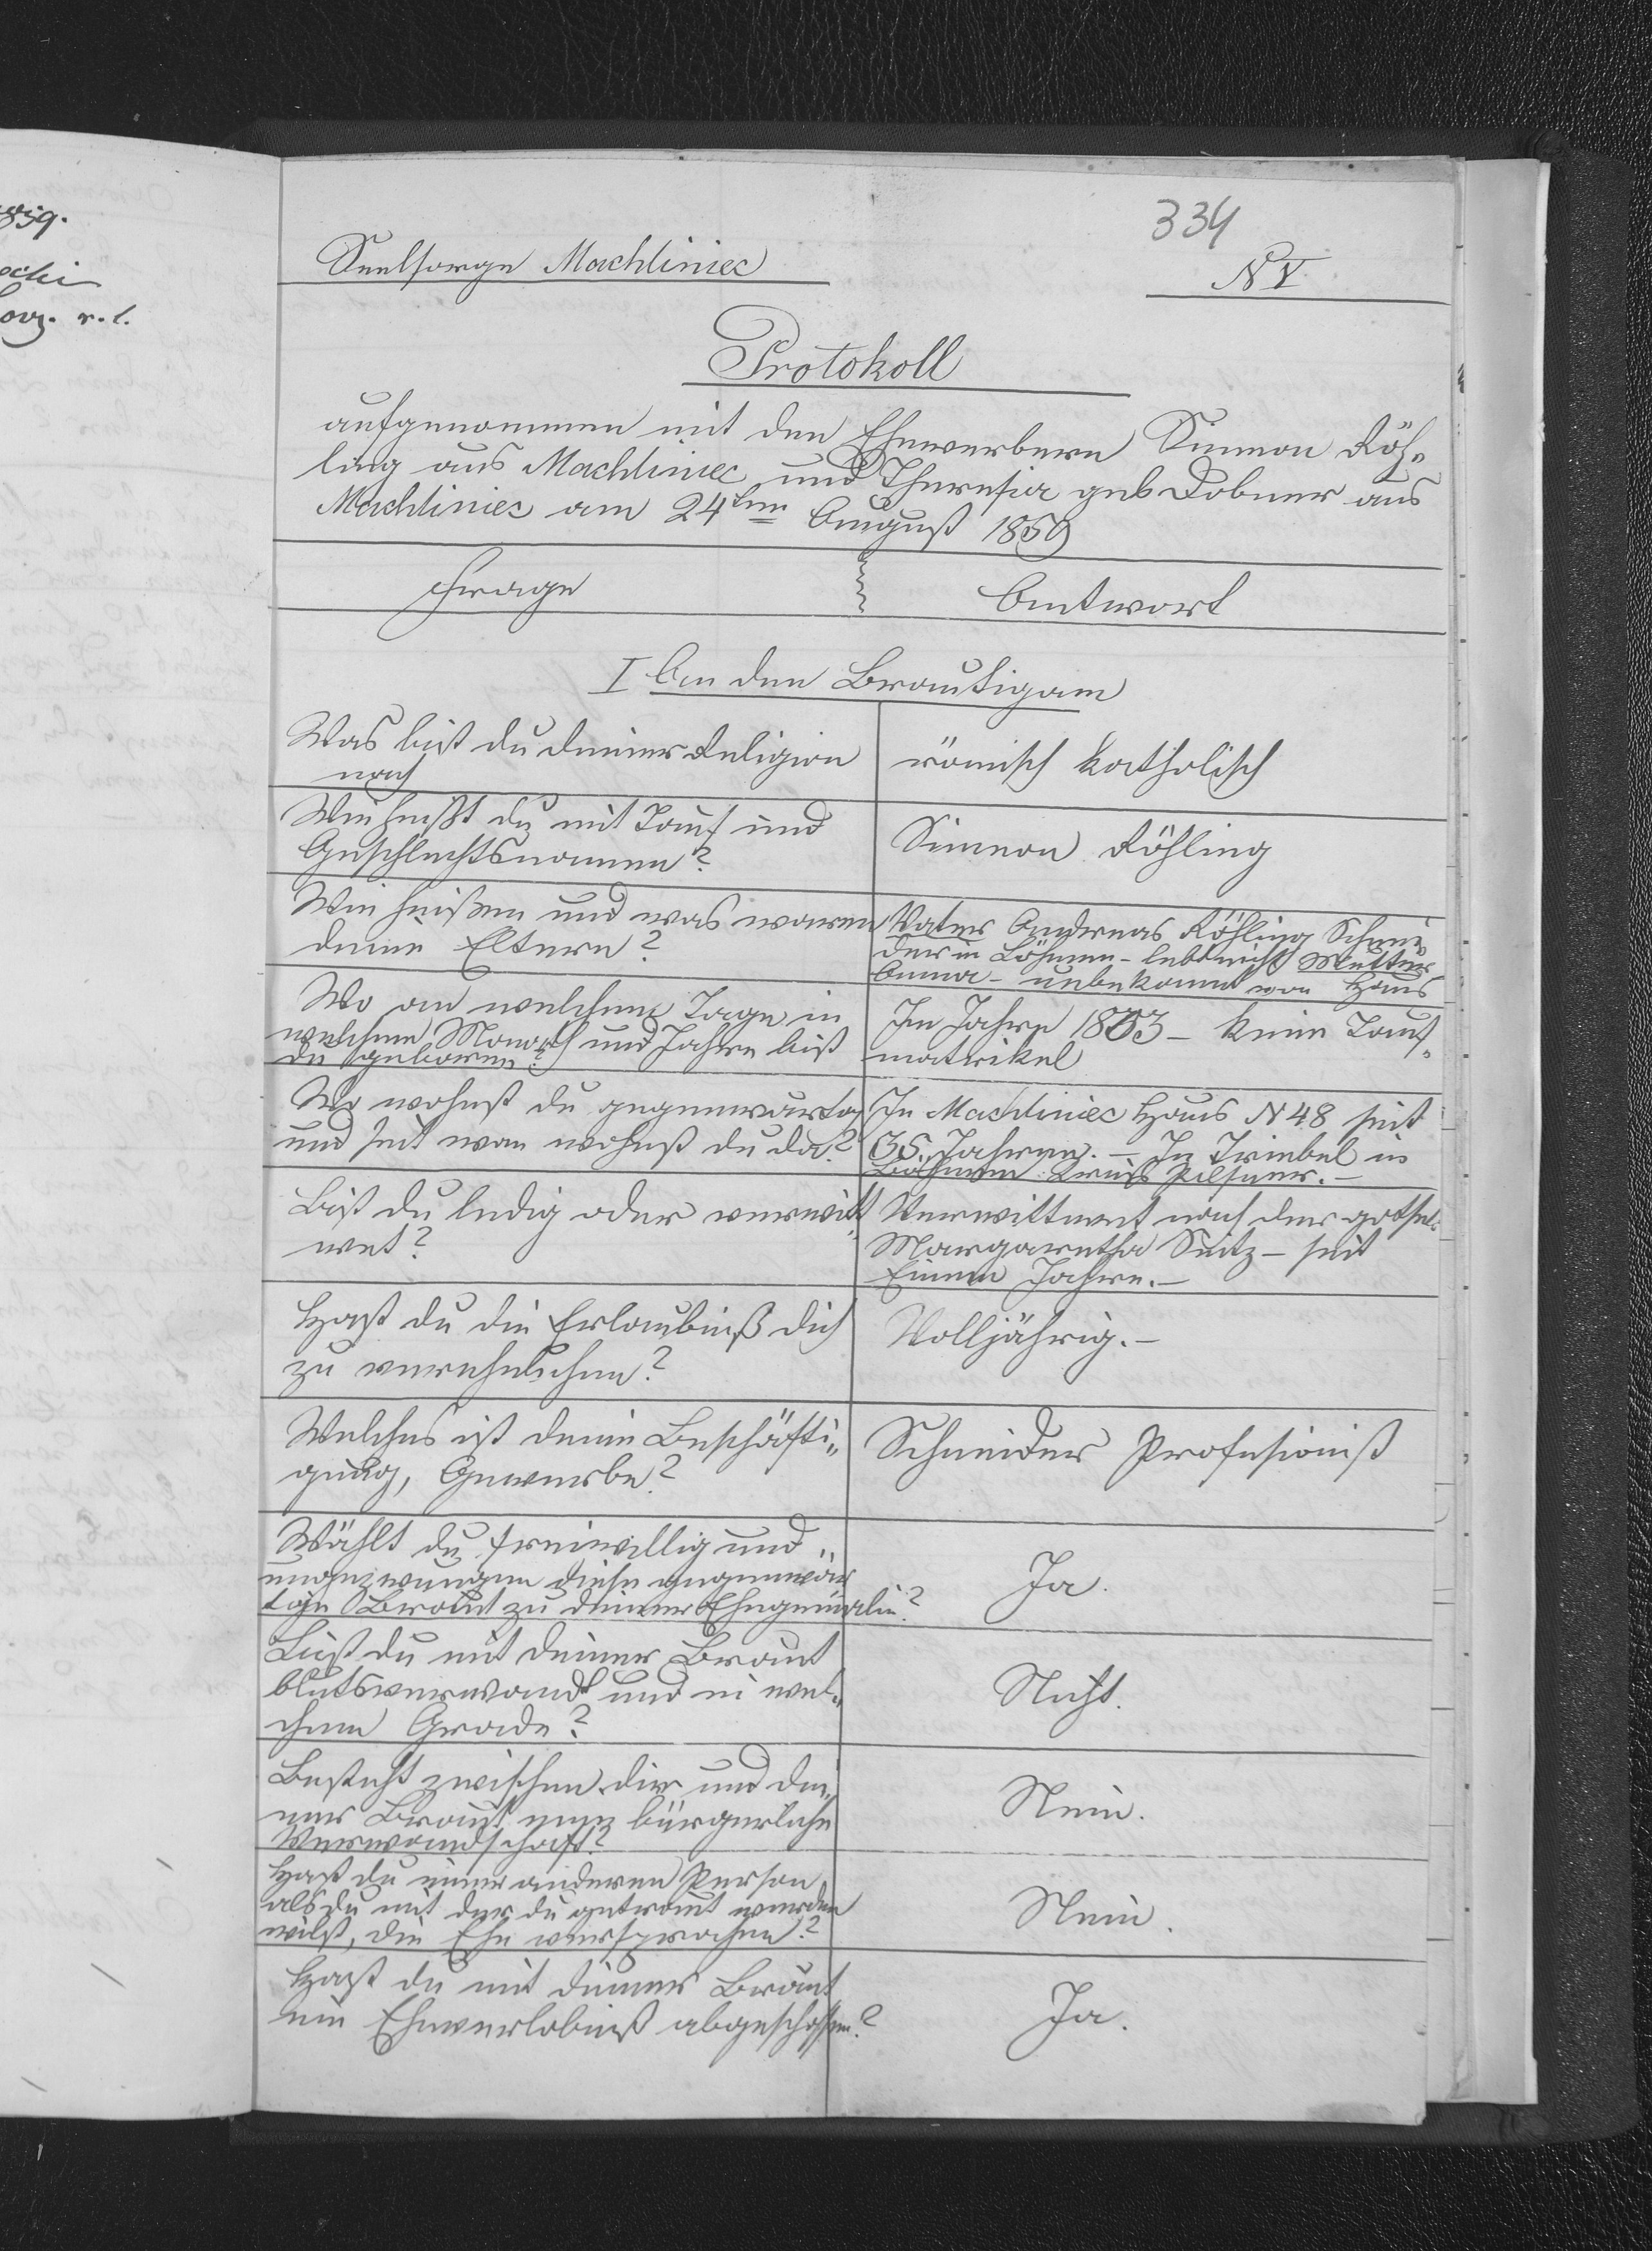 859.
334
Seelsorge Machliniec
N V
Protokoll
aufgenommen mit den Ehewerbern Simeon Röh„
ling aus Machliniec und Theresia geb Dobner aus
Machliniec am 24ten August 1859
Frage
Antwort
I An den Brautigam
Was bist du deiner Religion
nach
römisch katholisch
Wie heißt du mit Tauf und
Geschlechtsnamen?
Simeon Röhling
Wie heißen und was waren
deine Eltern?
Vater Andreas Röhling Schnei„
der in Böhmen - lebt nicht Mutter
Anna - unbekannt von Haus
Wo an welchem Tage in
welchem Monath und Jahre bist
du geboren?
Im Jahre 1803 - keine Tauf„
matrikel
Wo wohnst du gegenwärtig
und seit wan wohnst du da?
In Machliniec Haus N 48 seit
35 Jahren. - In Triebel in
Böhmen Kreis Pilsner. -
Bist du ledig oder verwitt„
wet?
Verwittwet nach der gottsel.
Margaretha Seitz - seit
Einem Jahre. -
Hast du die Erlaubniß dich
zu verehelichen?
Volljährig. -
Welches ist deine Beschäfti„
gung, Gewerbe?
Schneider Profesionist
Wählt du freiwillig und
ungezwungen diese gegenwär„
tige Braut zu deiner Ehegemalin?
Ja.
Bist du mit deiner Braut
blutsverwandt und in wel„
chem Grade?
Nicht.
Besteht zwischen dir und dei„
ner Braut eine bürgerliche
Verwandschaft?
Nein.
Hast du einer anderen Person
als du mit der du getraut werden
wilst, die Ehe versprochen?
Nein.
Hast du mit deiner Braut
ein Eheverlobniß abgeschossen?
Ja.